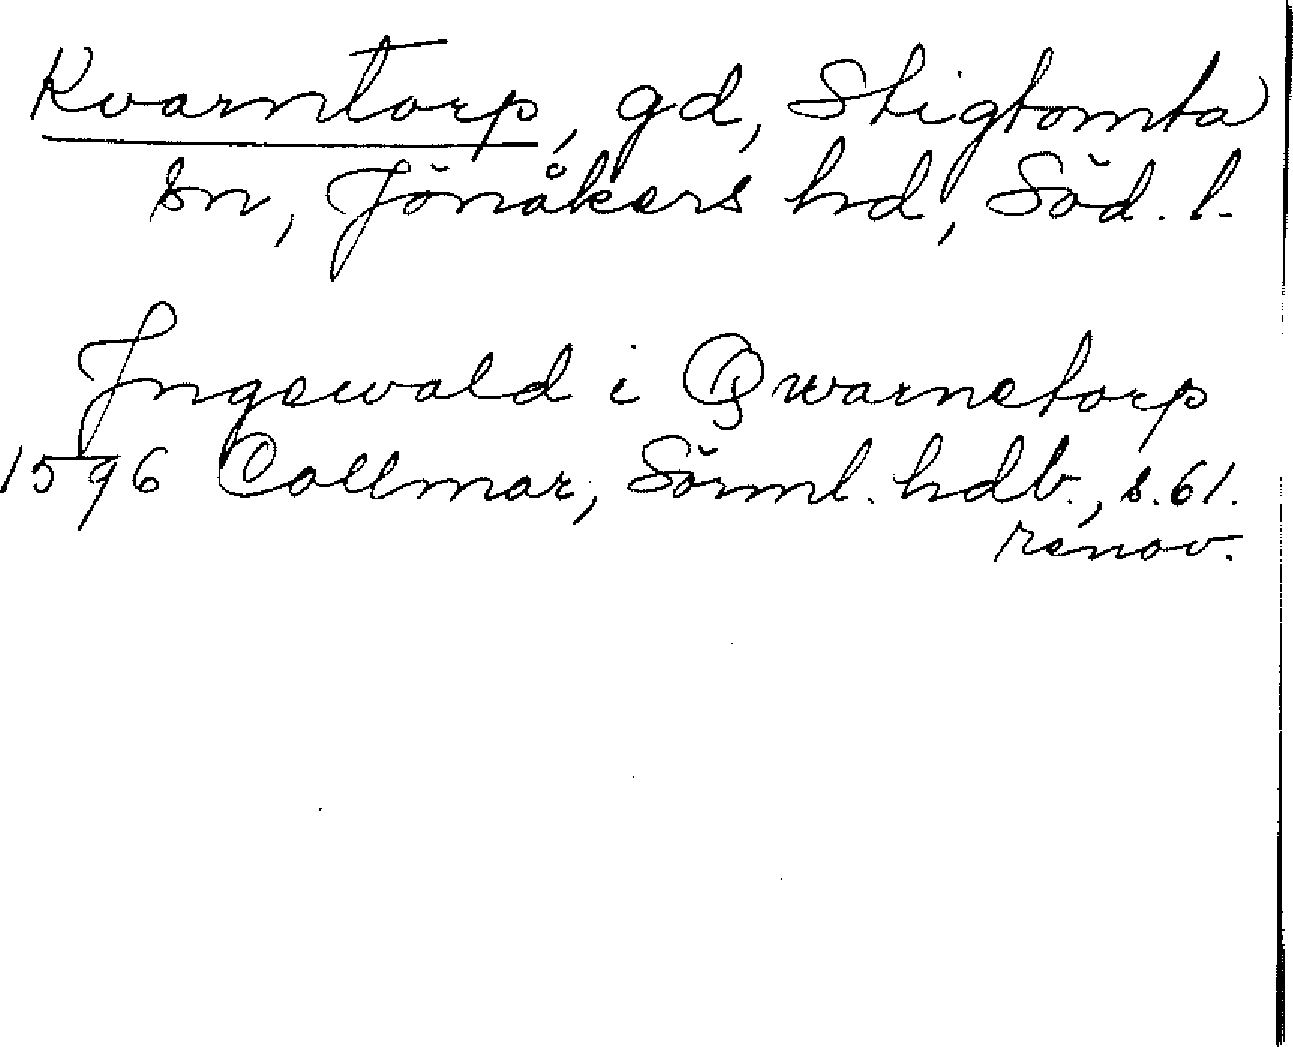 Kvarntorp, gd, Stigtomta
sn, Jönåkers hd, Söd. l.
Ingewald i Qwarnetorp
1596 Collmar, Sörml. hdb., s. 61.
renov.